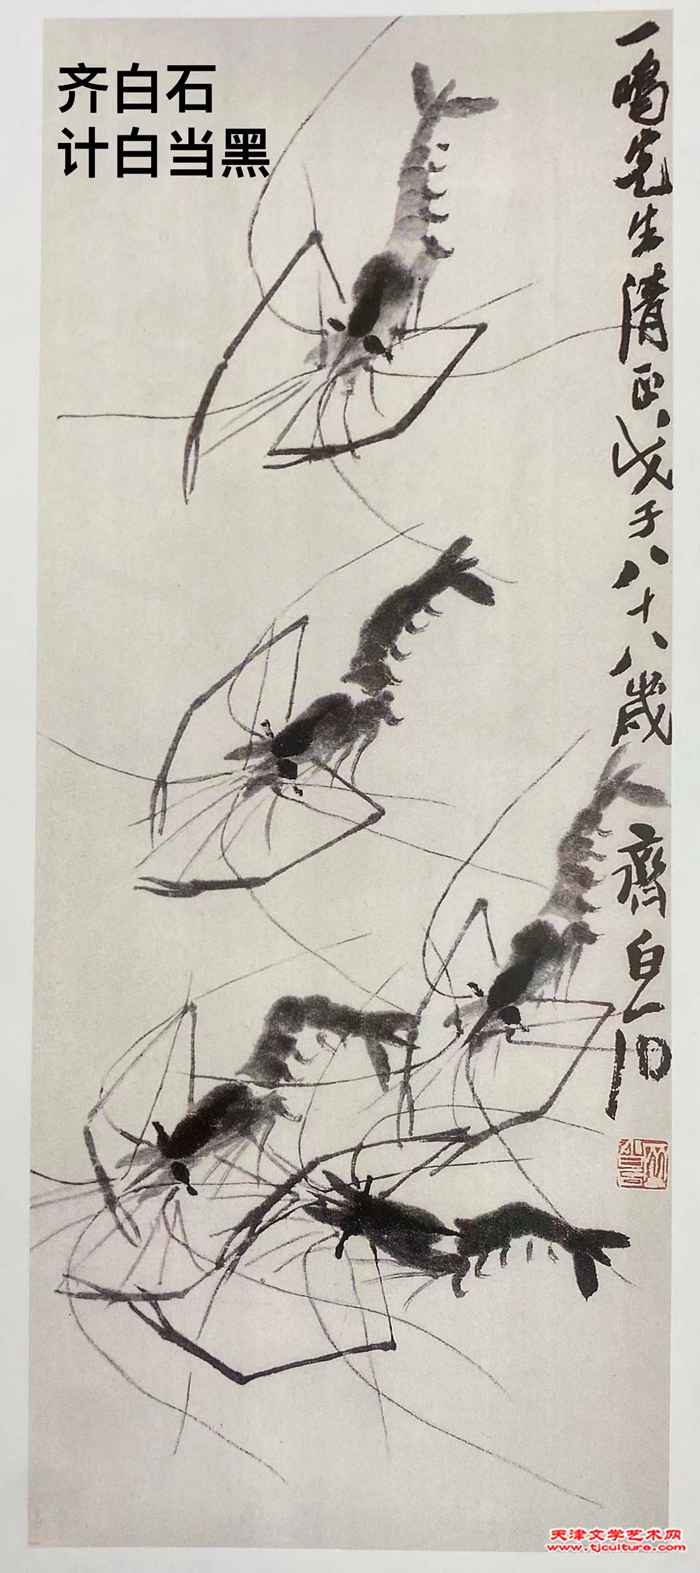 齐白石
计白当黑
一鸣先生清正戊子八十八岁 齊白石
天津文学艺术网
www.tjculture.com